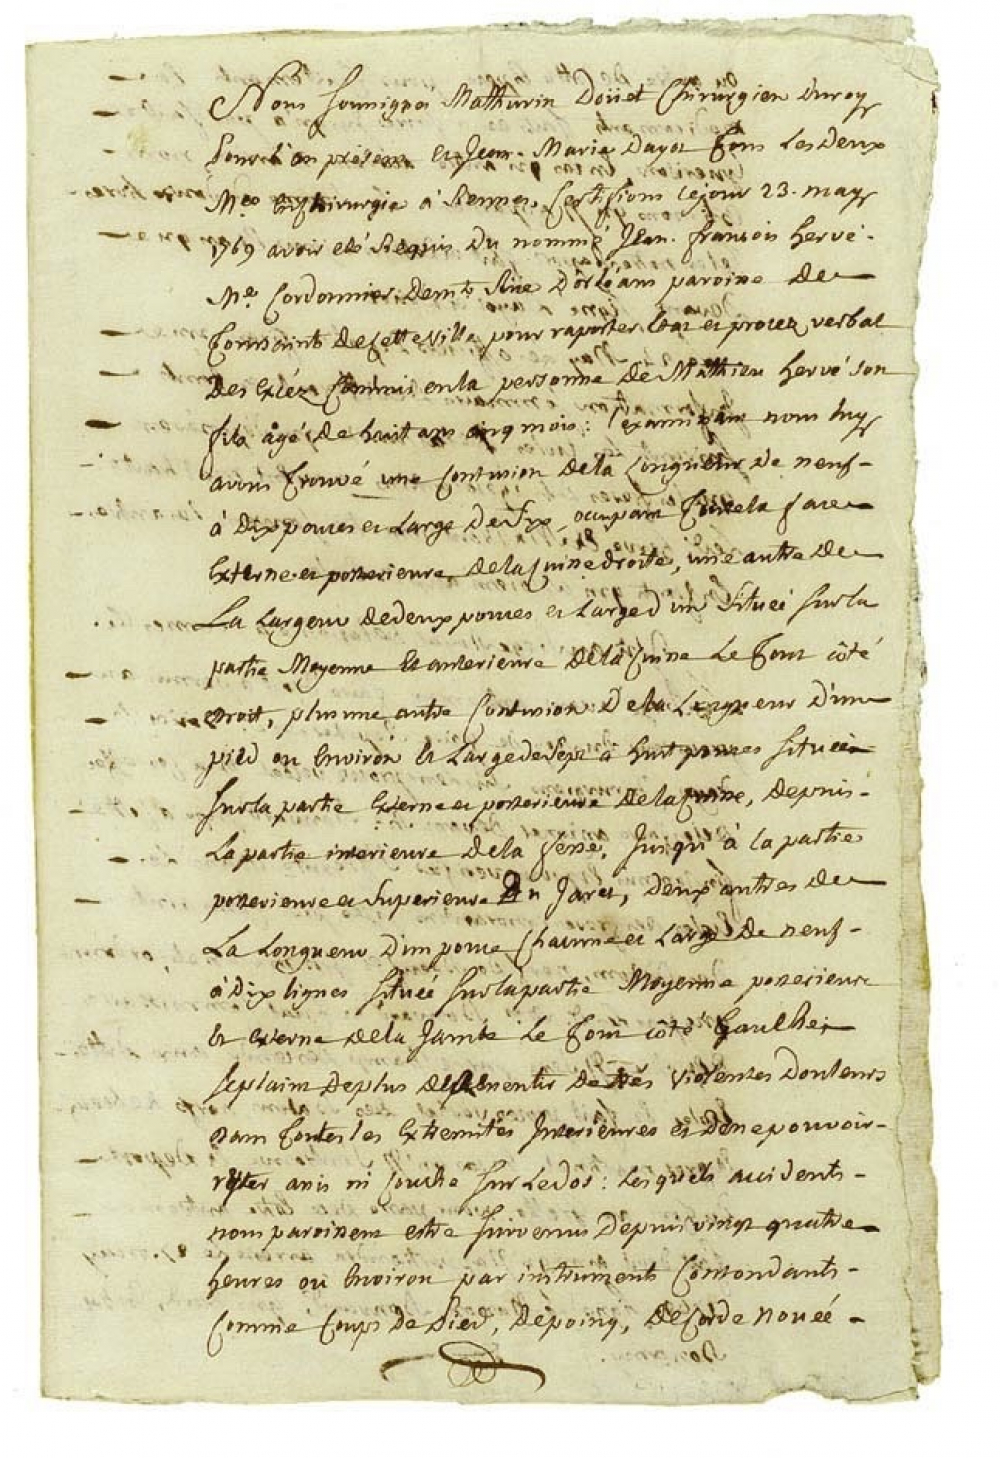 Nous Soussignes Mathurin Doüet Chirurgien du roy
Pour l'an présent et Jean-Marie Dayot tous les deux
Mes en chirurgie à Rennes, Certifions ce jour 23. may
1769 avoir eté Requis du nommé Jean-françois hervé-
Me Cordonnier demt Rüe D'orléans paroisse de
Toussaints de cette Ville pour raporter Etat et procez verbal
Des excéz Commis en la personne de Mathieu hervé son
fils âgé de huit ans cinq mois : l'examinant nous luy
avons trouvé une Contusion de la longueur de neuf-
à dix pouces et Large de six, occupant toute la face
Externe et posterieure de la Cuisse droite, une autre de
La Largeur de deux pouces et Large d'un Situeé sur la
partie Moyenne et anterieure de la Cuisse Le tout côté
droit, plus une autre Contusion de la Longueur d'un
pied ou Environ et Large de sept à huit pouces Situeé
sur la partie Externe et posterieure de la Cuisse, depuis-
La partie inferieure de la fesse, Jusqu'à la partie
posterieure et Superieure du Jaret, deux autres de
La Longueur d'un pouce Chacune et Large de neuf-
à dix lignes Situeé sur la partie Moyenne posterieure
et Externe de la Jambe Le tout côté Gauche;
se plaint de plus de ressentir de trés violentes Douleurs
dans toutes les Extremités Inferieures et de ne pouvoir-
rester assis ni Couché sur Le dos : Lesquels accidents-
nous paroissent estre survenus depuis vingt quatre
heures ou Environ par instruments Contondants-
Comme Coups de Pied, de poing, de Corde noueé-